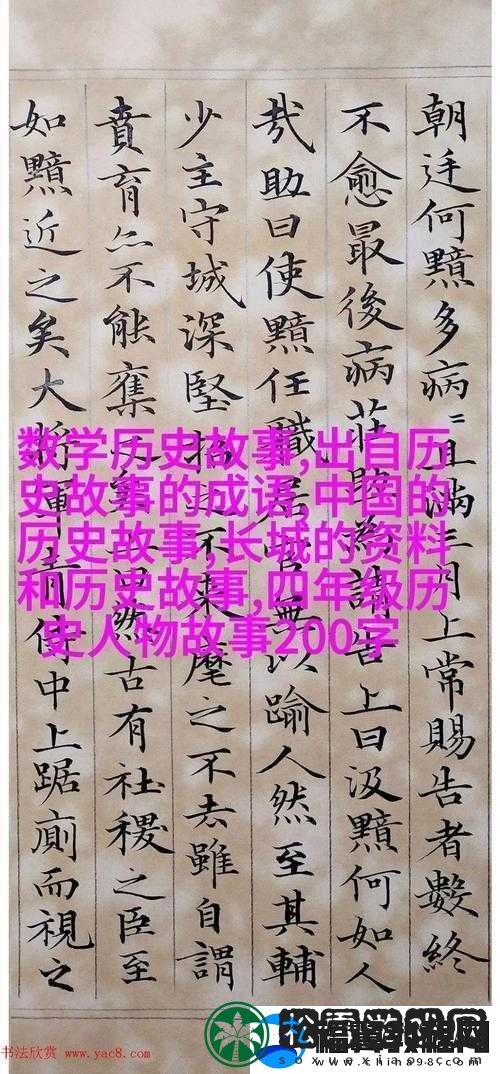 朝廷何黯多病=且滿三月上常賜告者數終
不愈最後病莊助為請告上曰汲黯何如人
哉助曰使黯任職居官無以踰人然至其輔
少主守城深堅招之不來麾之不去雖自謂
賁育亦不能奪之矣上曰然古有社稷之臣至
如黯近之矣大將軍青侍中上踞廁而視之
数学历史故事,出自历
史故事的成语,中国的
历史故事,长城的资料
和历史故事,四年级历
史人物故事200字
书法欣赏 www.yac8.com